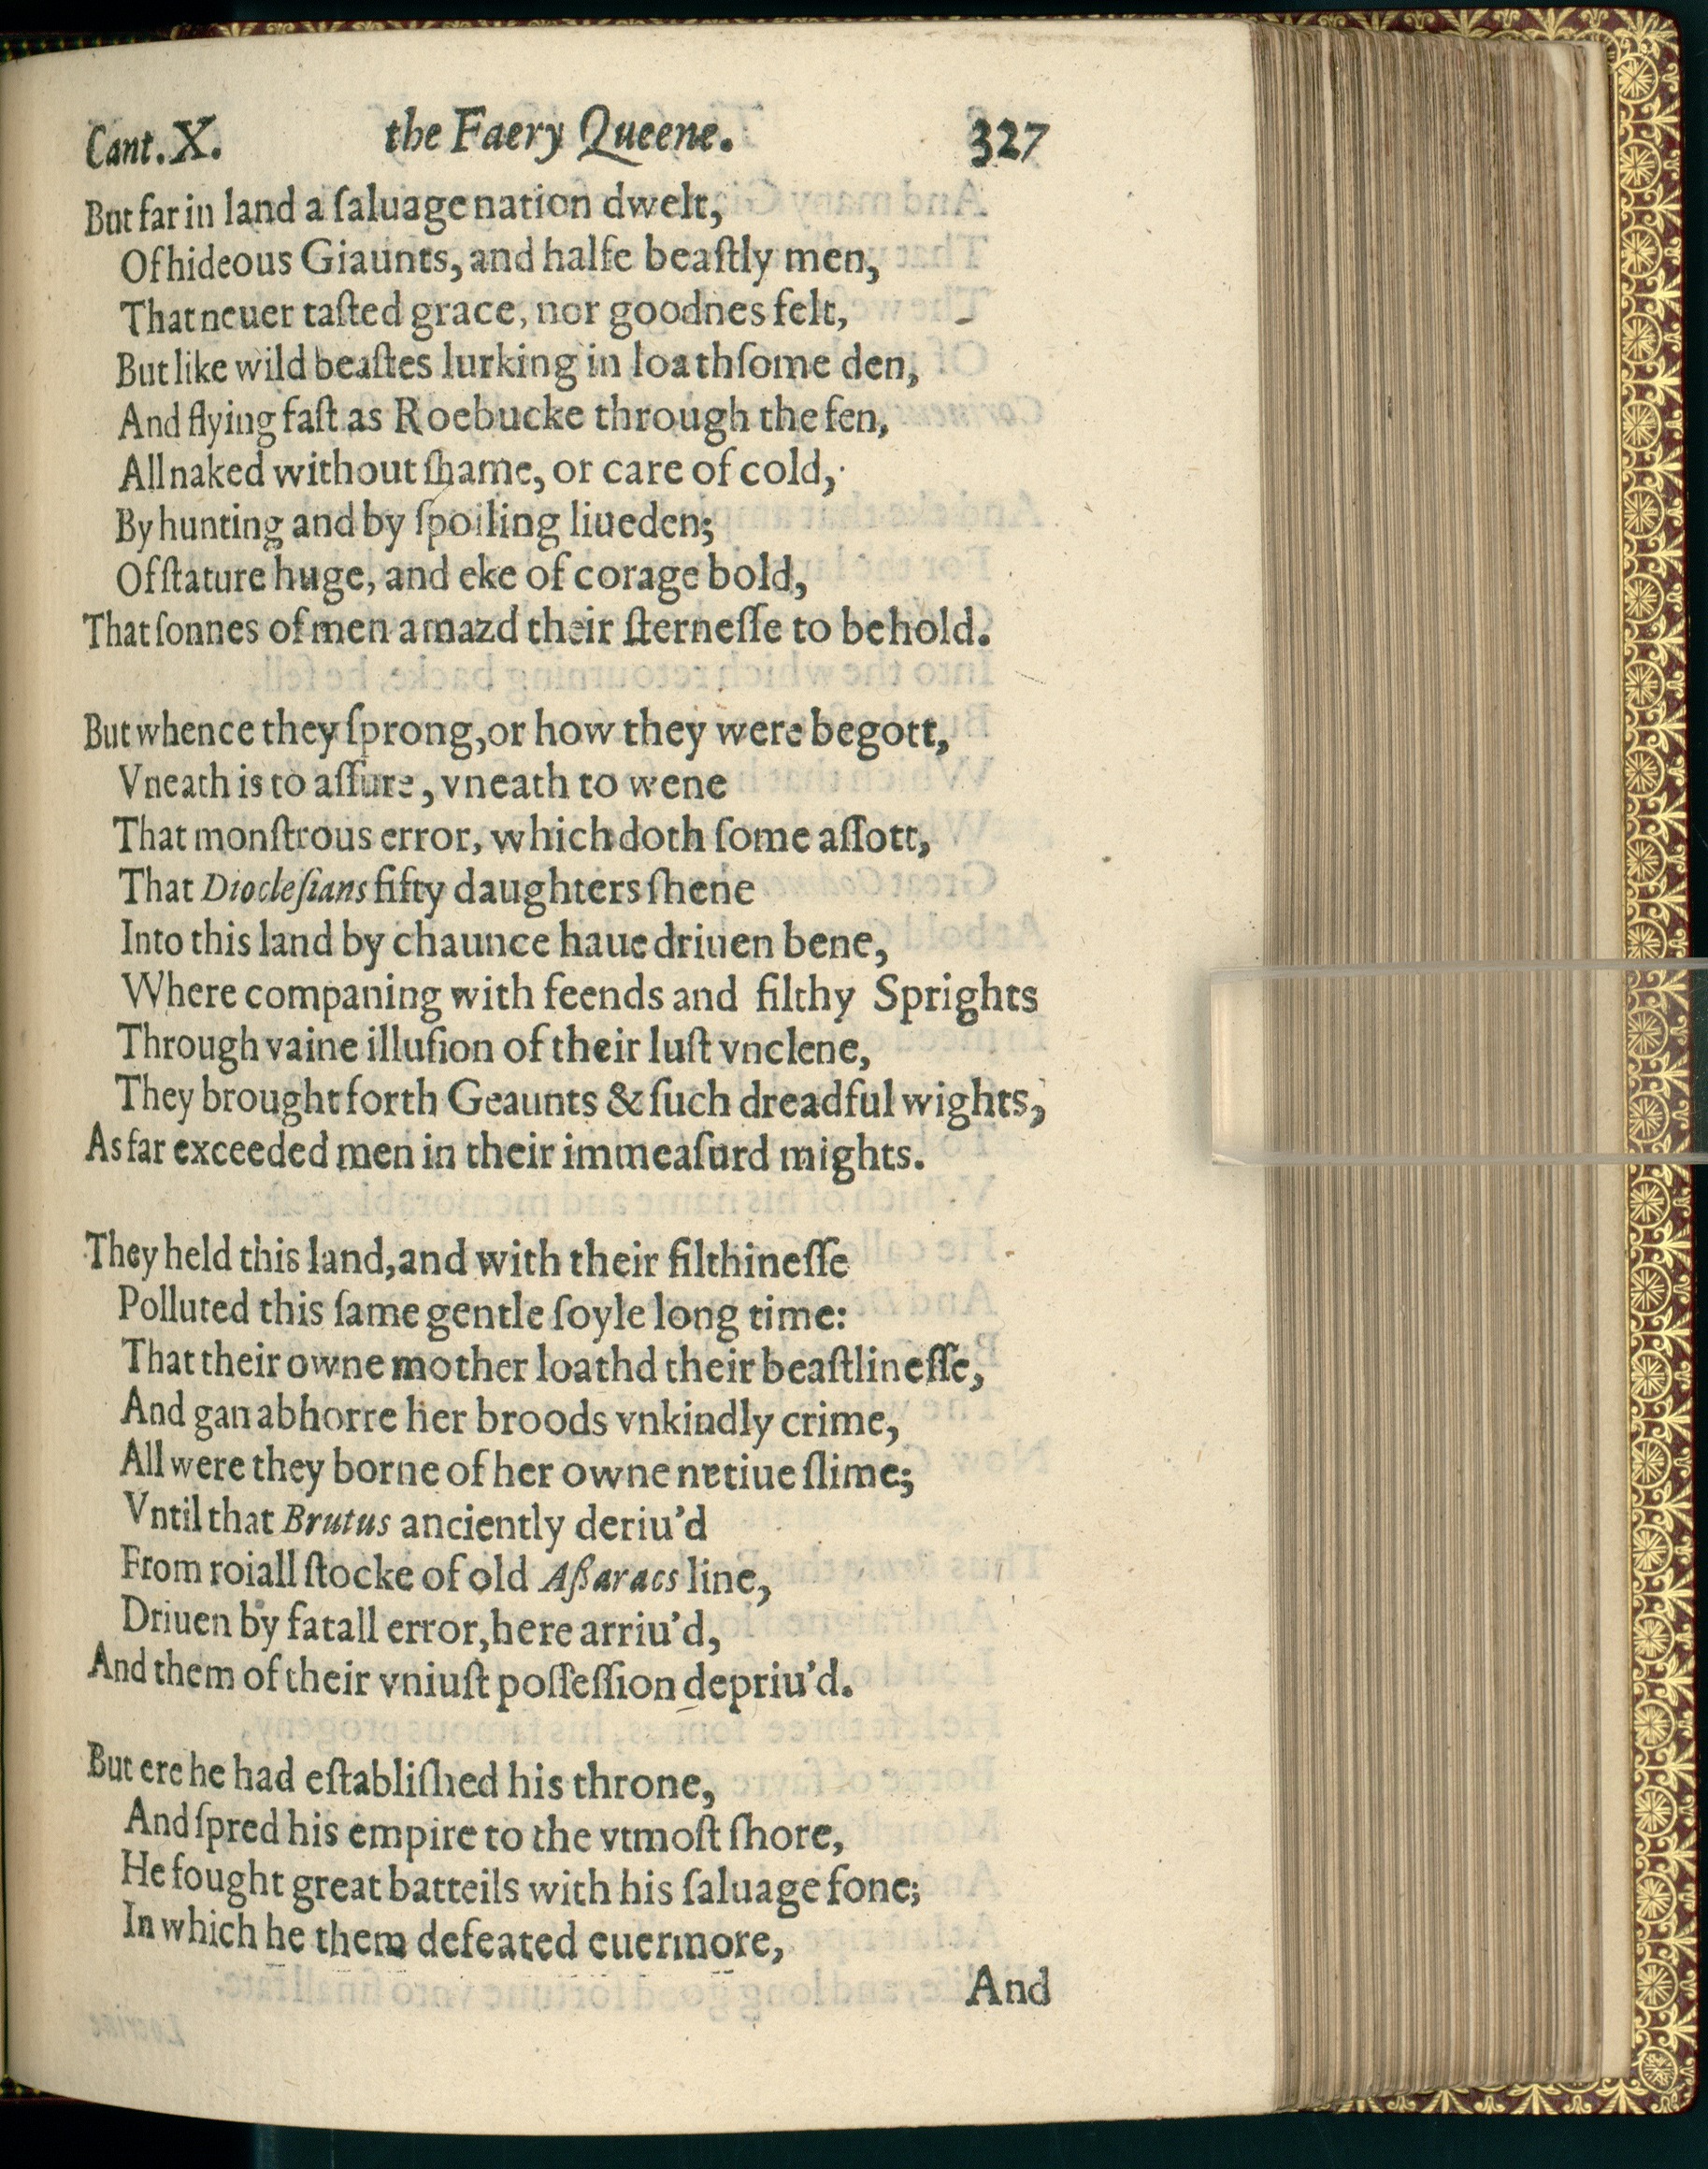 Cant. X. the Faery Queene. 327
But far in land a ſaluage nation dwelt,
Of hideous Giaunts, and halfe beaſtly men,
That neuer taſted grace, nor goodnes felt,
But like wild beaſtes lurking in loathſome den,
And flying faſt as Roebucke through the fen,
All naked without ſhame, or care of cold,
By hunting and by ſpoiling liueden;
Of ſtature huge, and eke of corage bold,
That ſonnes of men amazd their ſterneſſe to behold.
But whence they ſprong, or how they were begott,
Vneath is to aſſure, vneath to wene
That monſtrous error, which doth ſome aſſott,
That Diocleſians fifty daughters ſhene
Into this land by chaunce haue driuen bene,
Where companing with feends and filthy Sprights
Through vaine illuſion of their luſt vnclene,
They brought forth Geaunts & ſuch dreadful wights,
As far exceeded men in their immeaſurd mights.
They held this land, and with their filthineſſe
Polluted this ſame gentle ſoyle long time:
That their owne mother loathd their beaſtlineſſe,
And gan abhorre her broods vnkindly crime,
All were they borne of her owne netiue ſlime;
Vntil that Brutus anciently deriu'd
From roiall ſtocke of old Aßaracs line,
Driuen by fatall error, here arriu'd,
And them of their vniuſt poſſeſſion depriu'd.
But ere he had eſtabliſhed his throne,
And ſpred his empire to the vtmoſt ſhore,
He fought great batteils with his ſaluage fone;
In which he them defeated euermore,
And